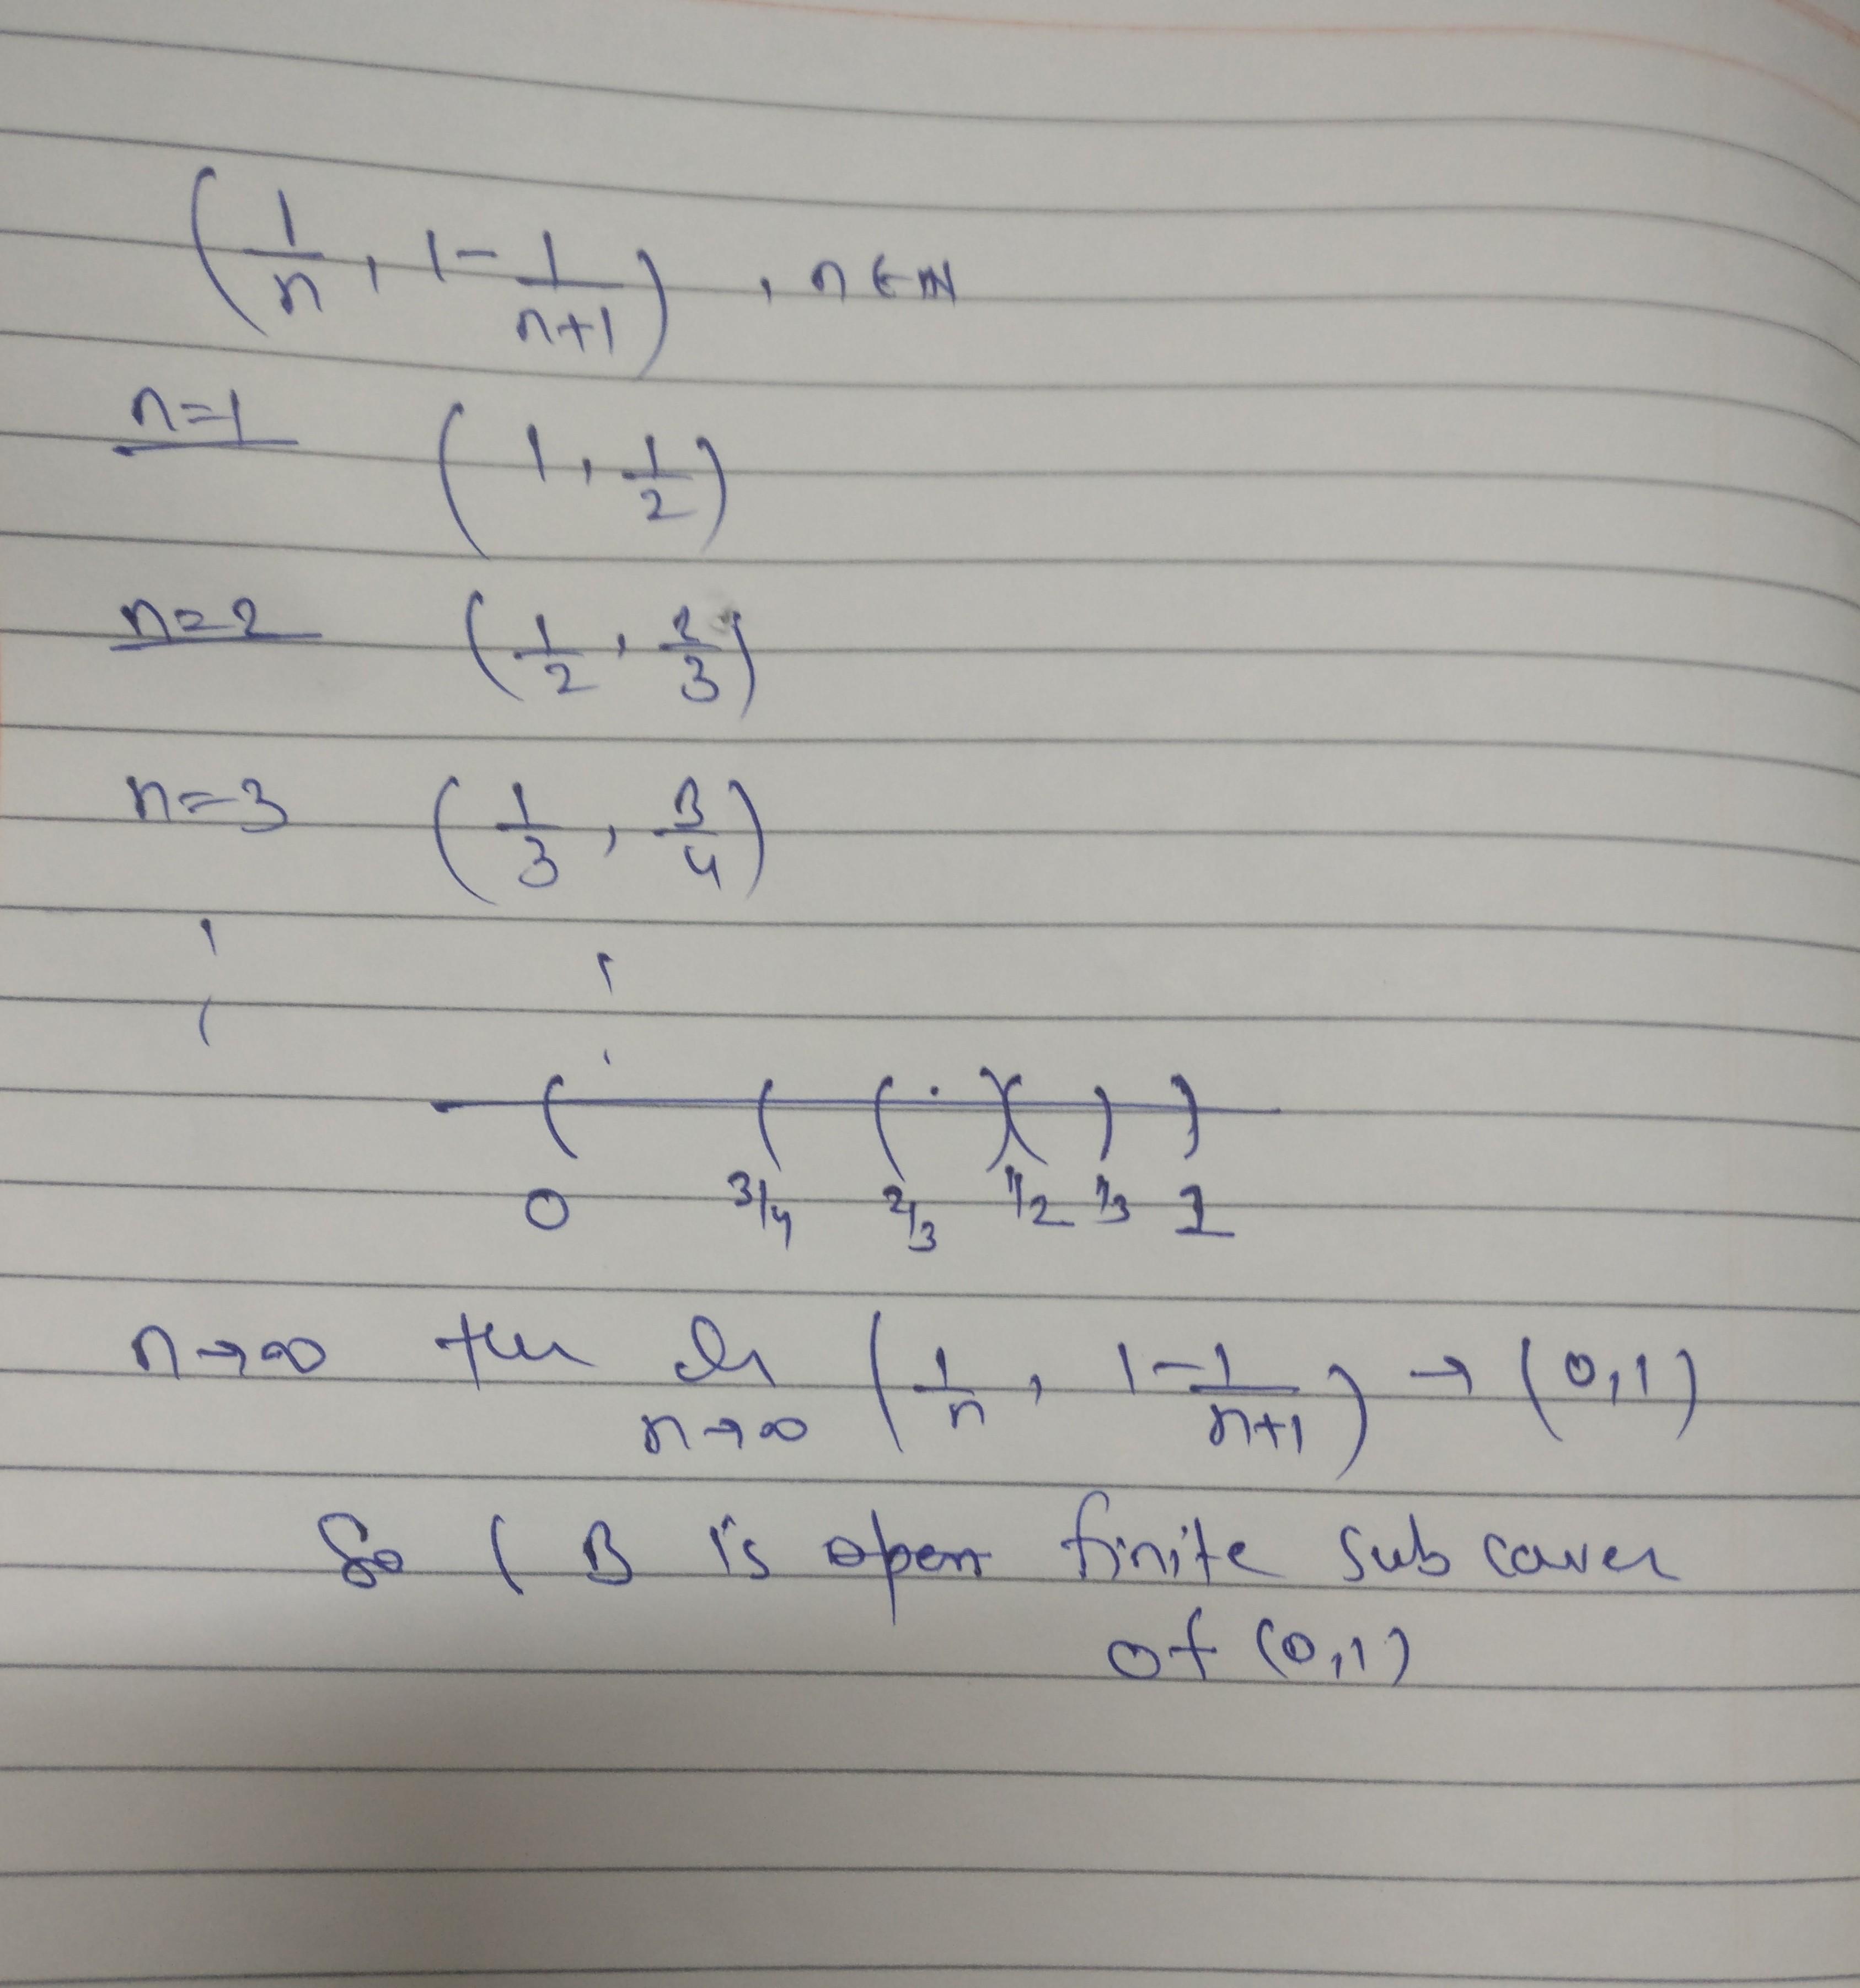 (1/n, 1 - 1/(n+1)), n ∈ ℕ
n=1 (1, 1/2)
n=2 (1/2, 2/3)
n=3 (1/3, 3/4)
0 3/4 2/3 1/2 1/3 1
n→∞ then lim n→∞ (1/n, 1 - 1/(n+1)) → (0,1)
So ( B is open finite sub cover
of (0,1)